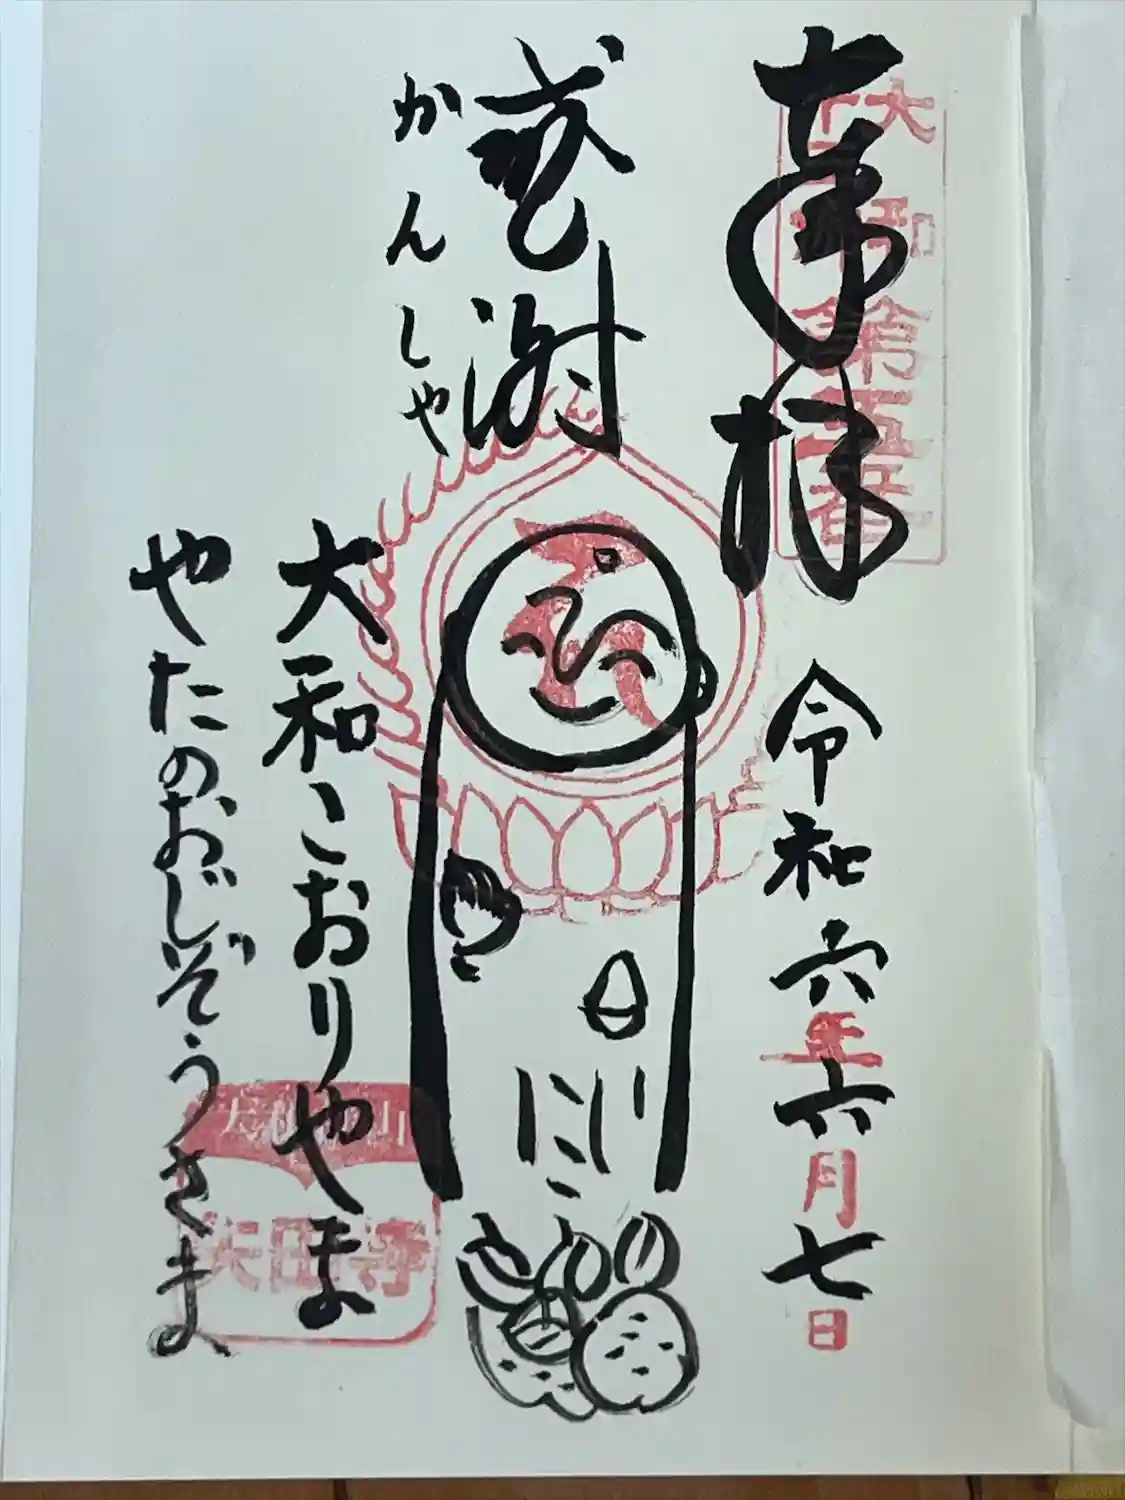 奉拝
大和
十三佛
第五番
令和六年六月七日
感謝
かんしゃ
大和こおりやま
やたのおじぞうさま
矢田寺